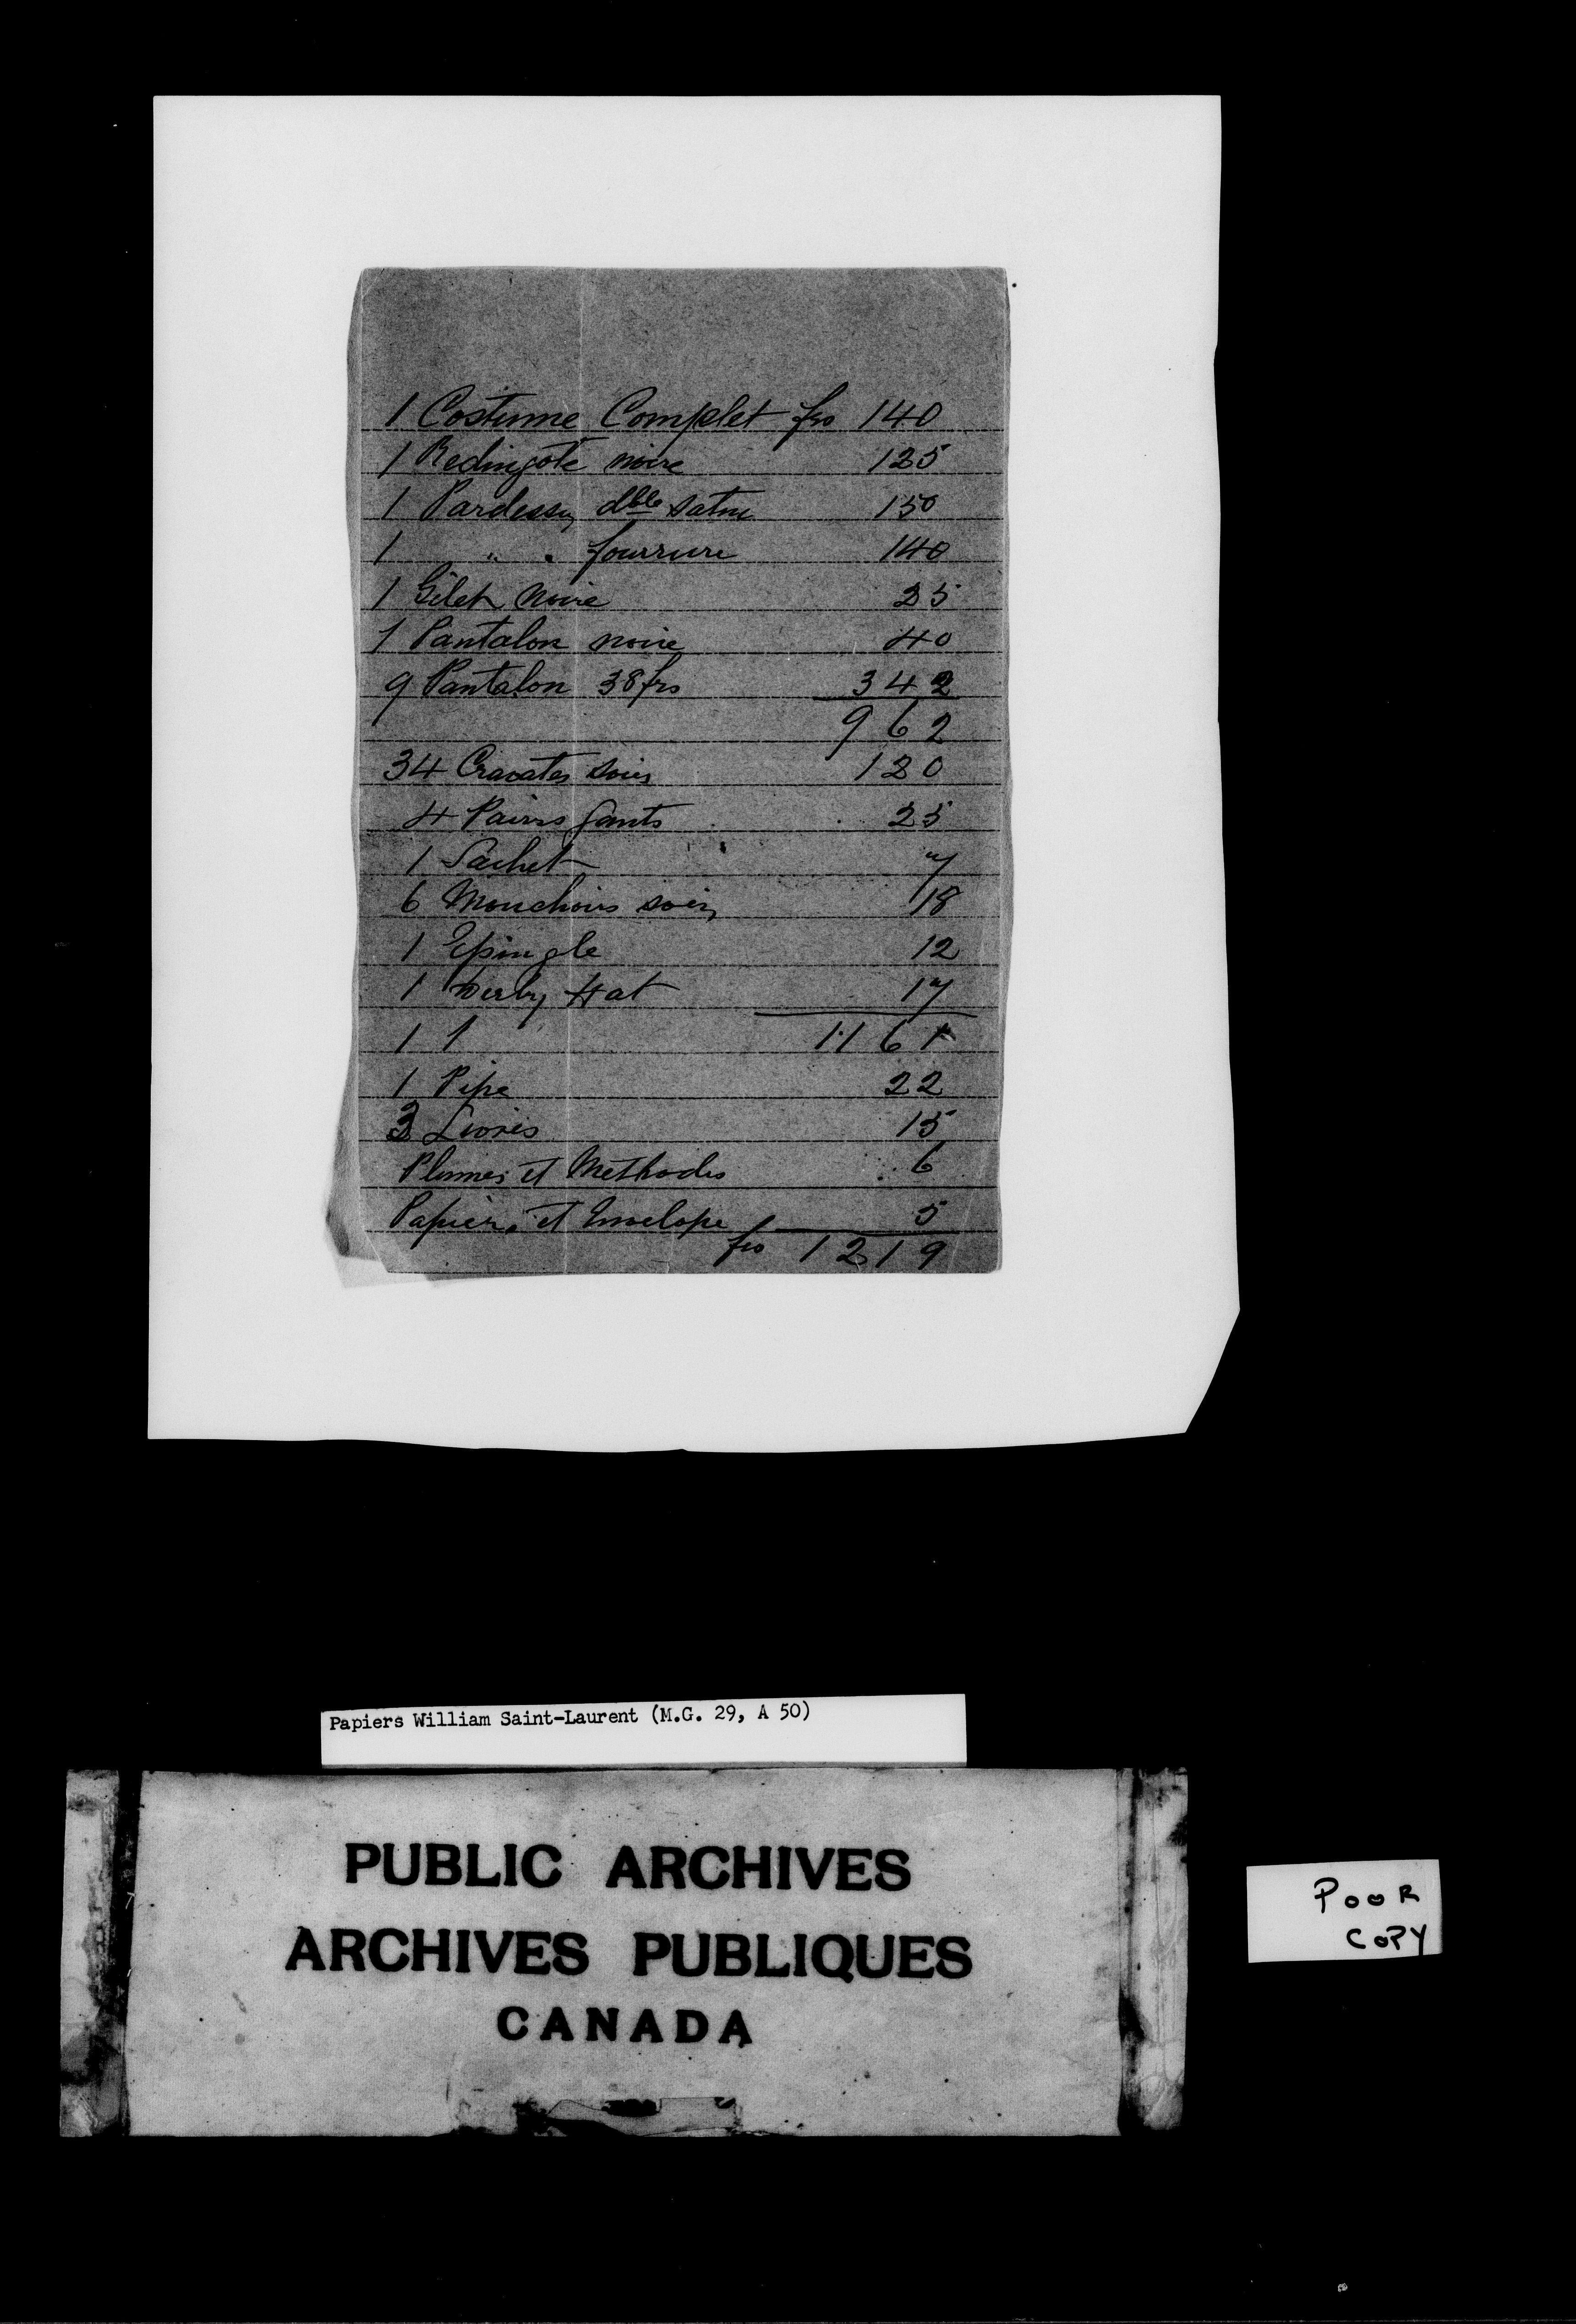 1 Costume Complet frs 140
1 Redingote noire 125
1 Pardessus dble satin 150
1 " " fourrure 140
1 Gilet noire 25
1 Pantalon noire 40
9 Pantalon 38 frs 342
962
34 Cravates soies 120
4 Paires gants 25
1 Sachet 7
6 Mouchoirs soies 18
1 Epingle 12
1 Derby Hat 17
1 1 1161
1 Pipe 22
3 Livres 15
Plumes et Methodes 6
Papier et Envelope 5
frs 1219
Papiers William Saint-Laurent (M.G. 29, A 50)
PUBLIC ARCHIVES
ARCHIVES PUBLIQUES
CANADA
POOR
COPY